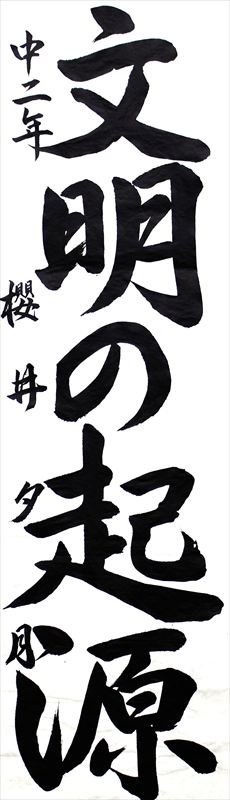 文明の起源
中二年 櫻井夕月